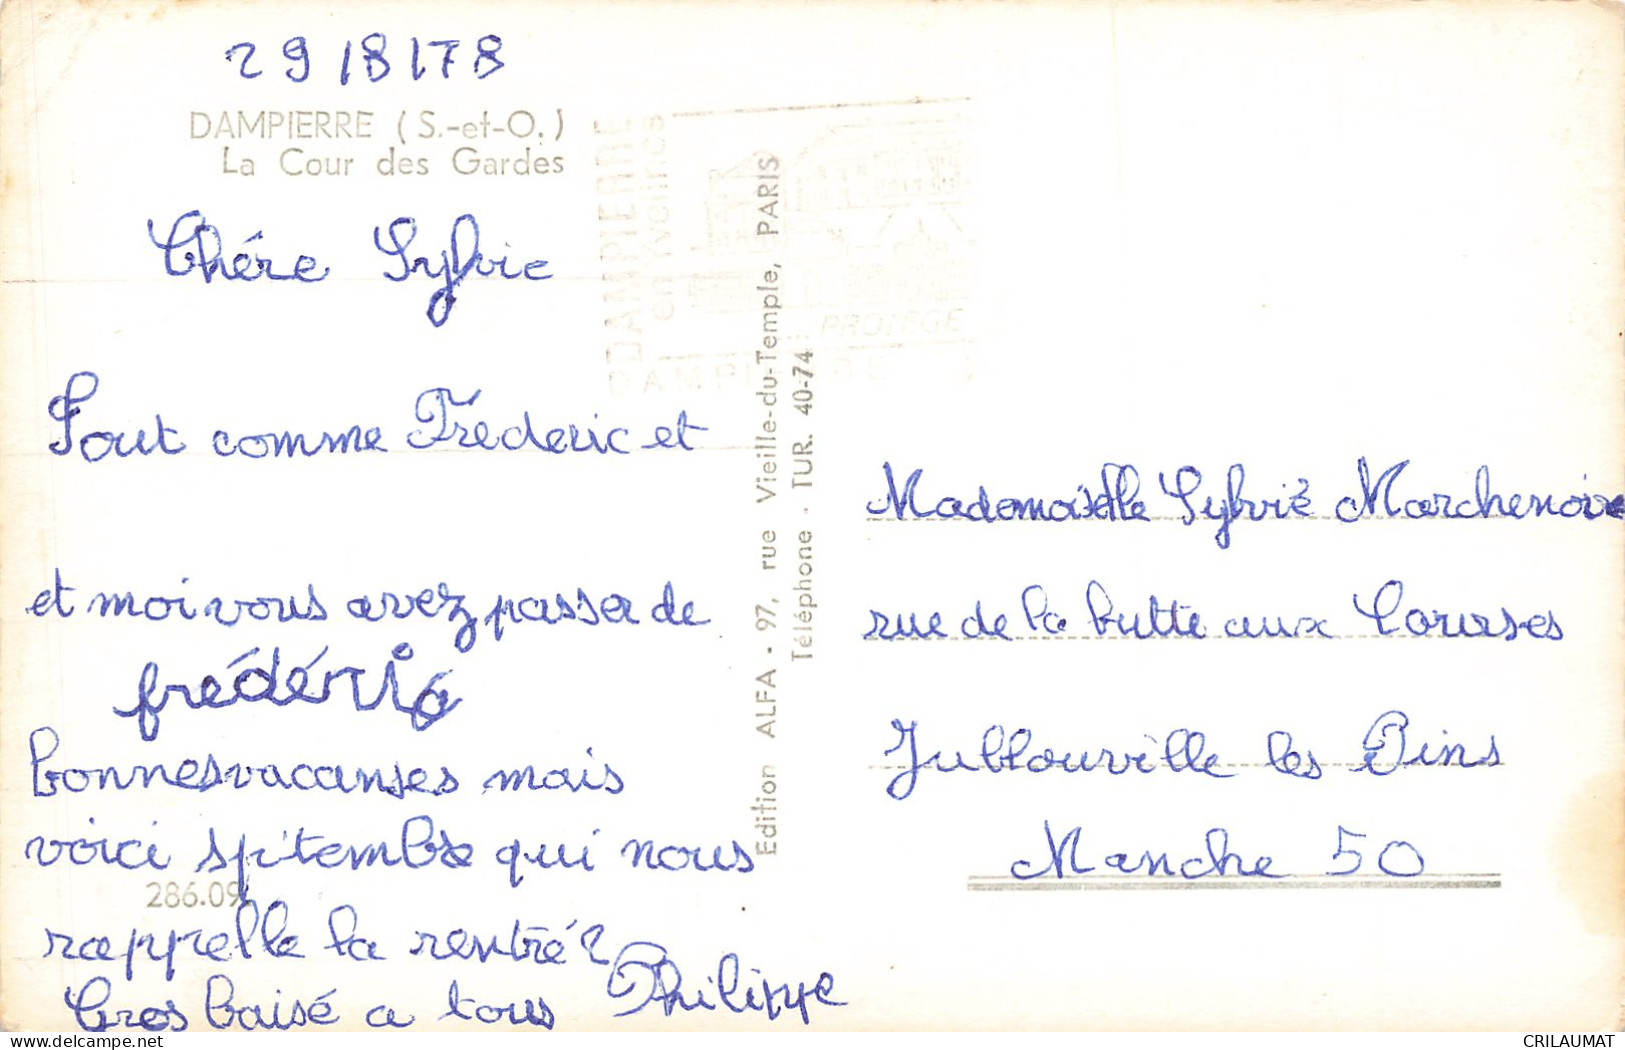 29/8/78
DAMPIERRE (S.-et-O.)
La Cour des Gardes
Chére Sylvie
Tout comme Fréderic et
et moi vous avez passer de
frédéric
bonnes vacanses mais
voici sptembre qui nous
286.09
rappelle la rentré
Gros baisé a tous Philippe
DAMPIERRE
en Yvelines
PROTEGE
DAMPIERRE
Edition ALFA - 97, rue Vieille-du-Temple, PARIS
Téléphone . TUR. 40-74
Mademoiselle Sylvie Marchenoire
rue de la butte aux Courses
Jullouville les Pins
Manche 50
CRILAUMAT